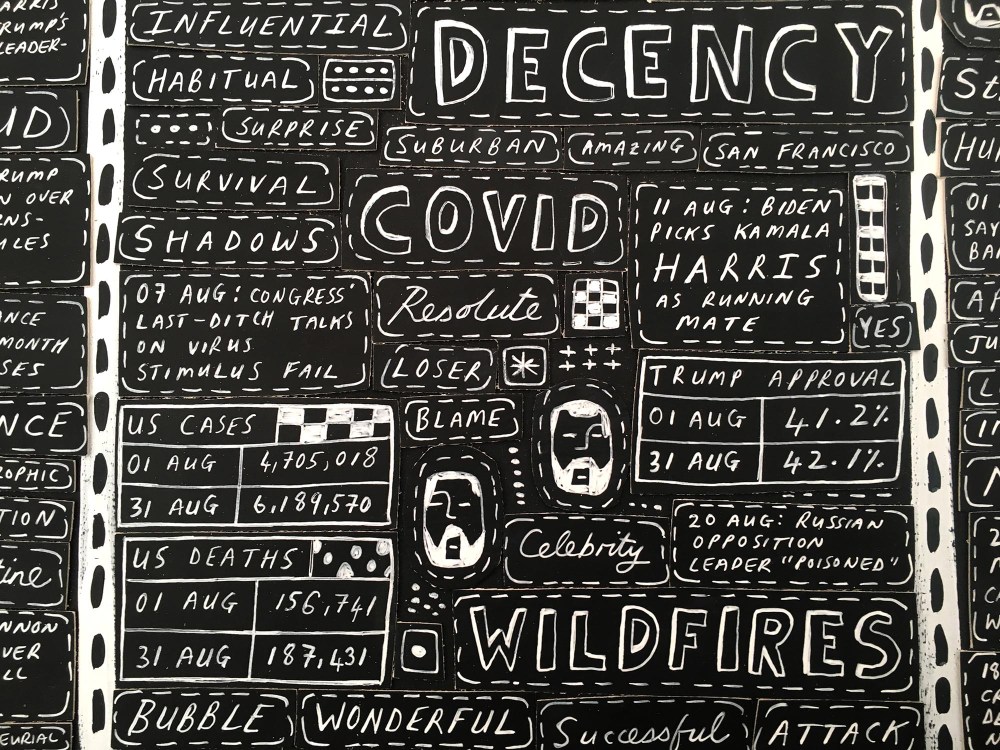 ARRIS
RUMP'S
LEADER-
UD
RUMP
N OVER
RNS-
ULES
ANCE
MONTH
SES
NCE
ROPHIC
TION
tine
NNON
VER
LL
EURIAL
INFLUENTIAL
DECENCY
HABITUAL
SURPRISE
SUBURBAN
AMAZING
SAN FRANCISCO
SURVIVAL
COVID
11 AUG: BIDEN
PICKS KAMALA
HARRIS
AS RUNNING
MATE
YES
SHADOWS
07 AUG: CONGRESS'
LAST-DITCH TALKS
ON VIRUS
STIMULUS FAIL
Resolute
LOSER
TRUMP APPROVAL
01 AUG 41.2%
31 AUG 42.1%
US CASES
01 AUG 4,705,018
31 AUG 6,189,570
BLAME
Celebrity
20 AUG: RUSSIAN
OPPOSITION
LEADER "POISONED"
US DEATHS
01 AUG 156,741
31 AUG 187,431
WILDFIRES
BUBBLE
WONDERFUL
Successful
ATTACK
St
HU
01
SAY
BA
JU
18
CA